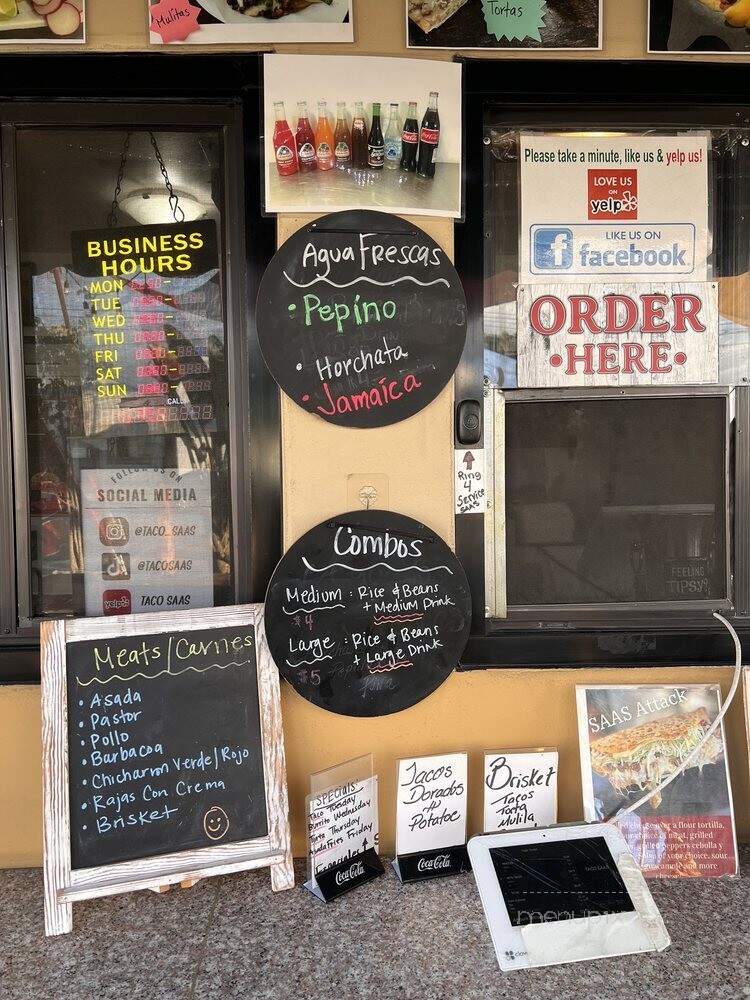 Mulitas
Tortas
Agua Frescas
• Pepino
• Horchata
• Jamaica
BUSINESS
HOURS
MON
TUE
WED
THU
FRI
SAT
SUN
FOLLOW US ON
SOCIAL MEDIA
@TACO_SAAS
@TACOSAAS
yelp
TACO SAAS
Please take a minute, like us & yelp us!
LOVE US
ON
yelp
LIKE US ON
facebook
ORDER
•HERE•
Ring
4
Service
SAAS
FEELING
TIPSY?
Combos
Medium : Rice & Beans
+ Medium Drink
$4
Large : Rice & Beans
+ Large Drink
$5
Meats/Carnes
• Asada
• Pastor
• Pollo
• Barbacoa
• Chicharron Verde/Rojo
• Rajas Con Crema
• Brisket
SPECIALS
Taco Tuesday
Burrito Wednesday
Torta Thursday
Fries Friday
Coca-Cola
Tacos
Dorados
Potatoe
Coca-Cola
Brisket
Tacos
Torta
Mulita
SAAS Attack
over a flour tortilla,
choice of meat, grilled
peppers cebolla y
salsa of your choice, sour
guacamole and more
TACO SAAS